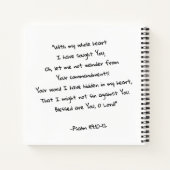 "With my whole heart
I have sought You,
Oh, let me not wander from
Your commandments!
Your word I have hidden in my heart,
That I might not sin against You.
Blessed are You, O Lord"
-Psalm 119:10-12